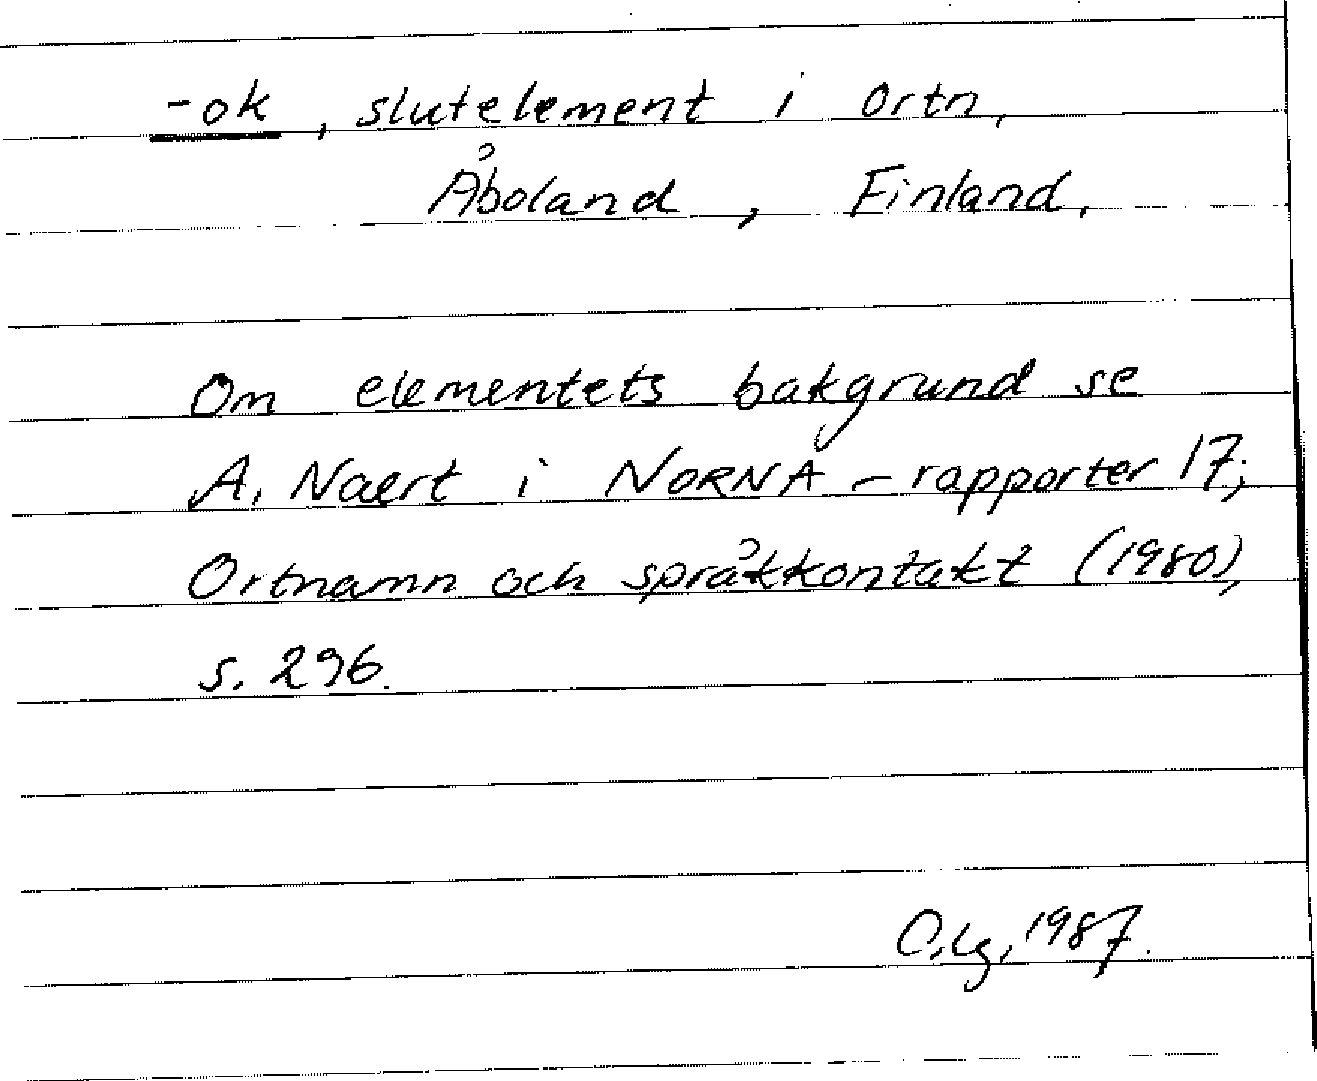 -ok, slutelement i ortn,
Åboland, Finland.
Om elementets bakgrund se
A. Naert i NORNA-rapporter 17;
Ortnamn och språkkontakt (1980),
s. 296.
O.Lg. 1987.